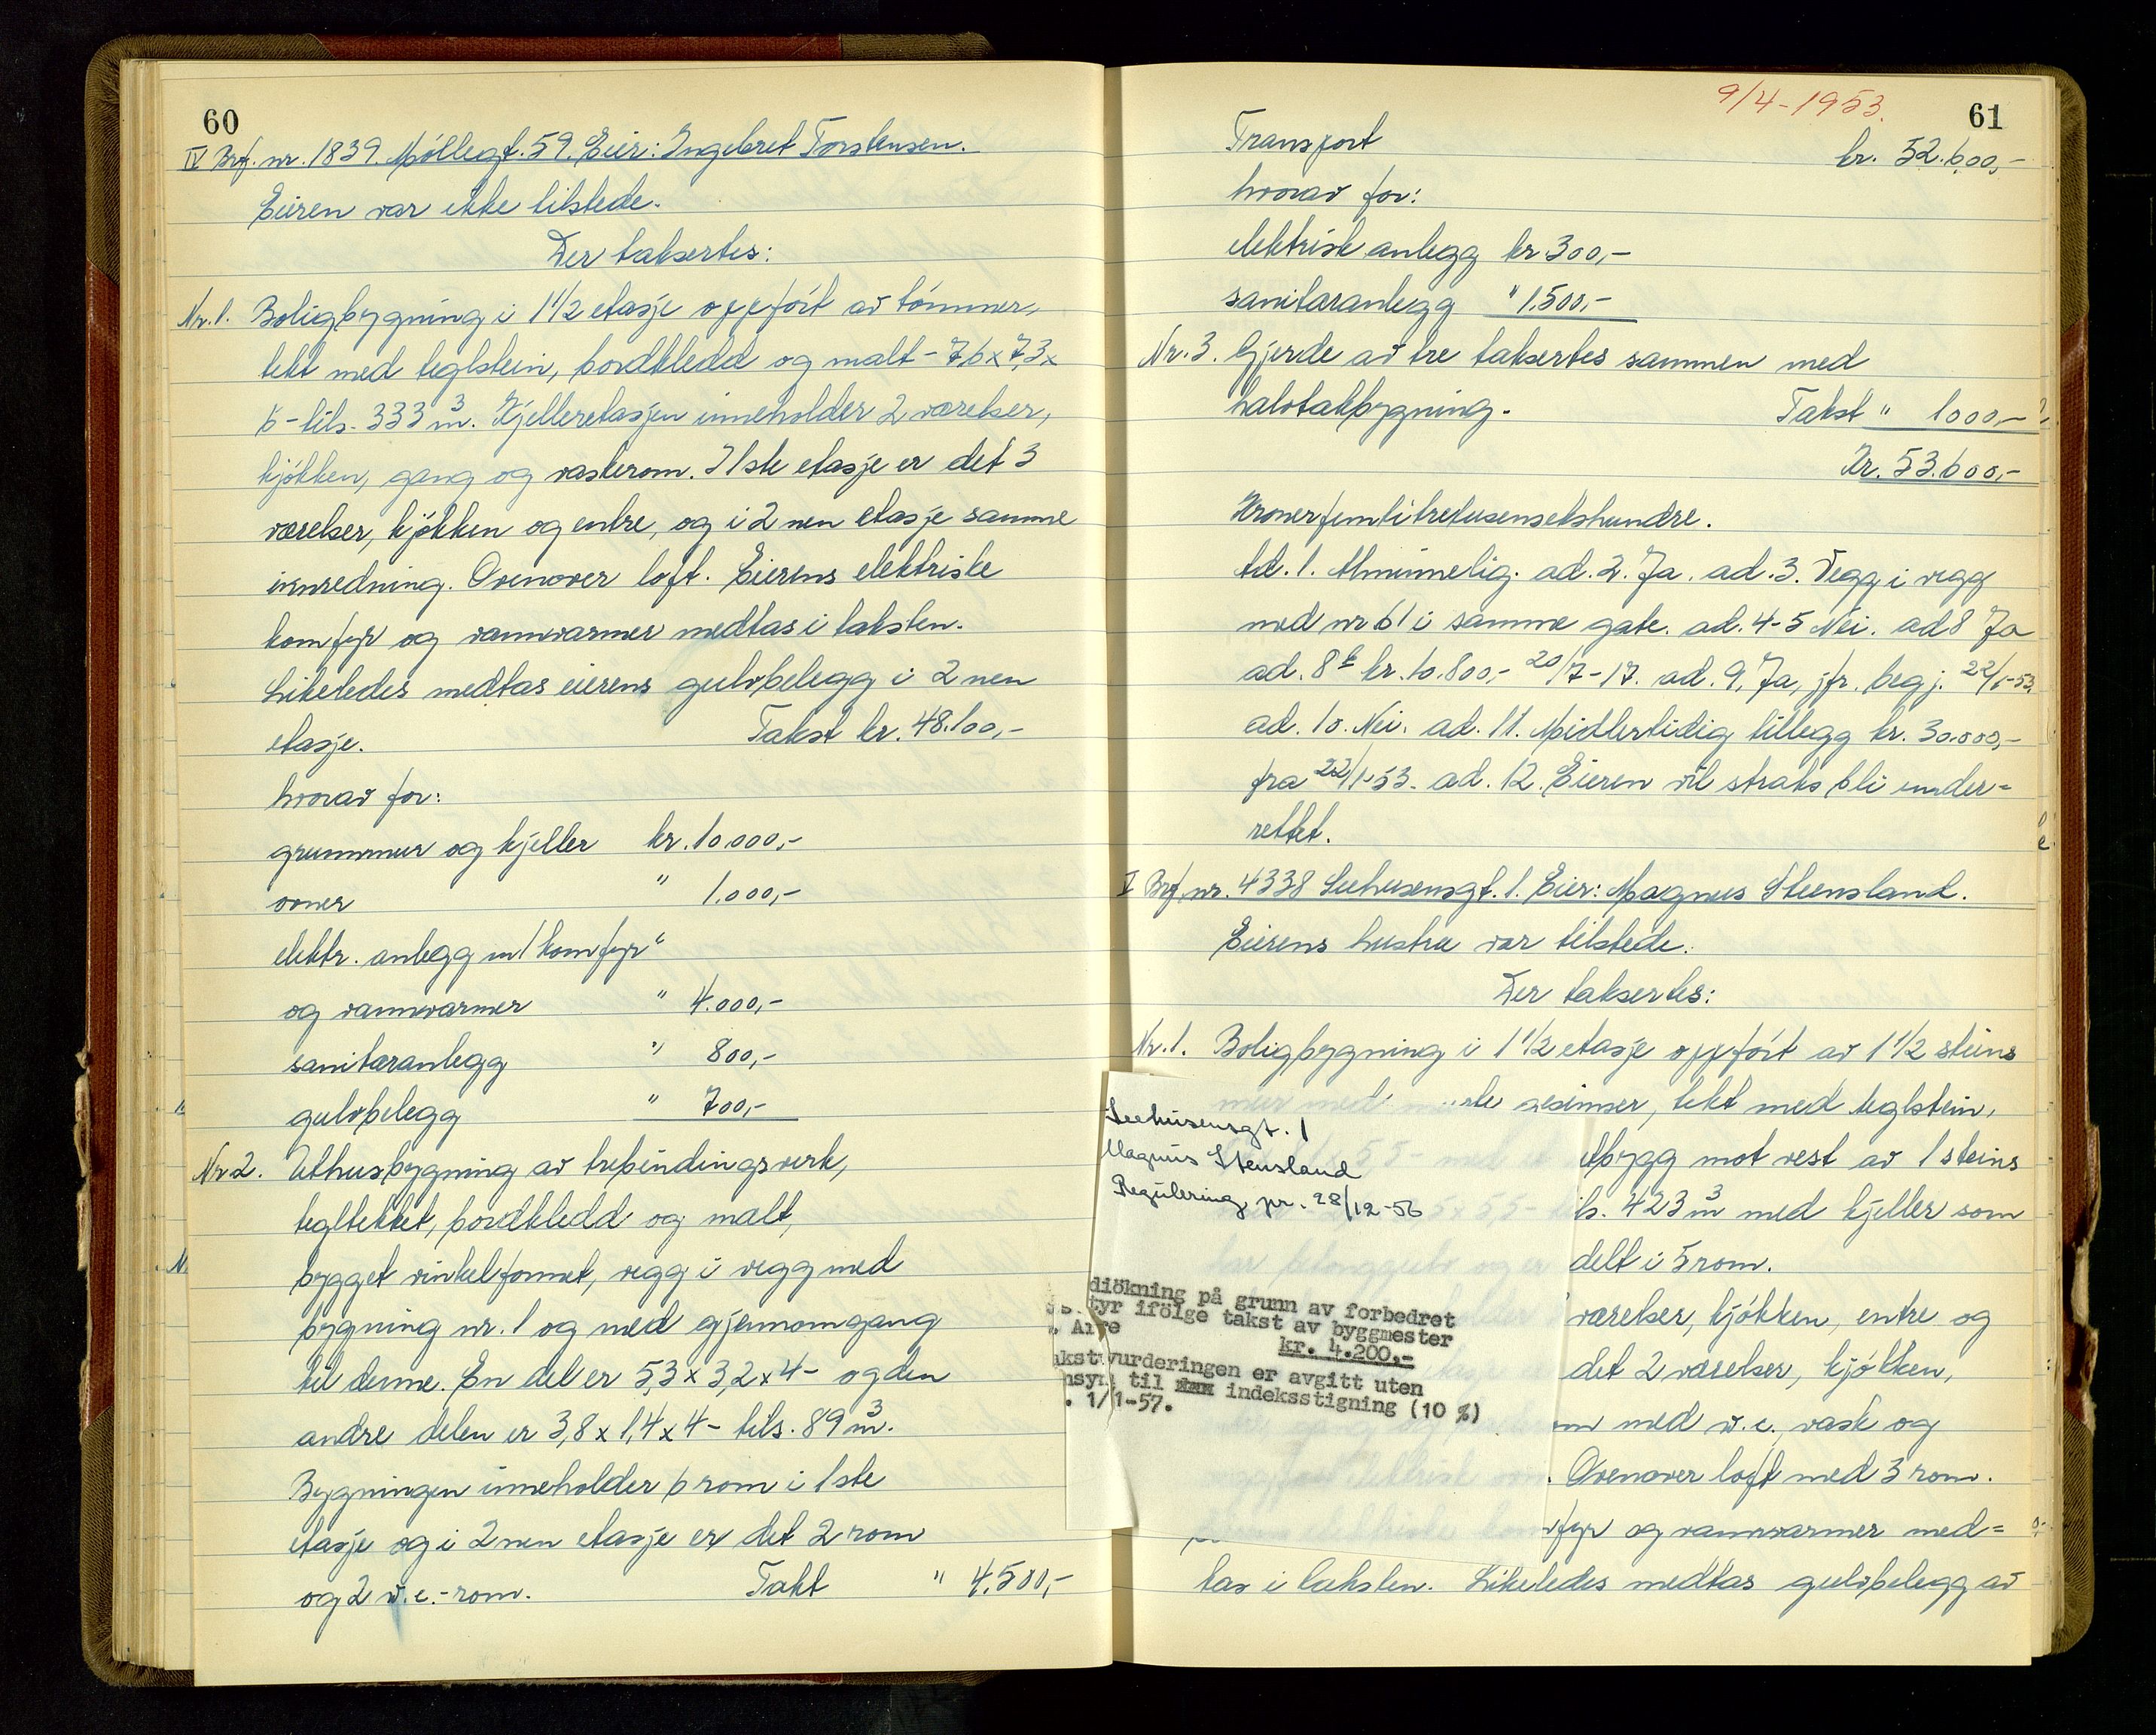 60
IV Brf. nr. 1839 Møllegt. 59. Eier: Ingebret Torstensen.
Eieren var ikke tilstede.
Der taksertes:
Nr. 1. Boligbygning i 1 1/2 etasje oppført av tømmer,
tekt med teglstein, bordkledd og malt - 7,6 x 7,3 x
6 - tils. 333 m³. Kjelleretasjen inneholder 2 værelser,
kjøkken, gang og vaskerom. I 1ste etasje er det 3
værelser, kjøkken og entre, og i 2nen etasje samme
innredning. Ovenover loft. Eierens elektriske
komfyr og vannvarmer medtas i taksten.
Likeledes medtas eierens gulvbelegg i 2nen
etasje. Takst kr. 48.100,-
hvorav for:
grunnmur og kjeller kr. 10.000,-
ovner " 1.000,-
elektr. anlegg m/komfyr "
og vannvarmer " 4.000,-
sanitæranlegg " 800,-
gulvbelegg " 700,-
Nr 2. Uthusbygning av trebindingsverk,
tegltekket, bordkledd og malt,
bygget vinkelformet, vegg i vegg med
bygning nr. 1 og med gjennomgang
til denne. En del er 5,3 x 3,2 x 4 - og den
andre delen er 3,8 x 1,4 x 4 - tils. 89 m³.
Bygningen inneholder 6 rom i 1ste
etasje og i 2nen etasje er det 2 rom
og 2 w.c.-rom. Takt " 4.500,-
9/4-1953.
61
Transport kr. 52.600,-
hvorav for:
elektrisk anlegg kr 300,-
sanitæranlegg " 1.500,-
Nr. 3. Gjerde av tre taksertes sammen med
halvtakbygning. Takst " 1000,-
Kr. 53.600,-
Kroner femtitretusensekshundre.
Ad. 1. Alminnelig. ad. 2. Ja. ad. 3. Vegg i vegg
med nr 61 i samme gate. ad. 4-5 Nei. ad 8 Ja
ad. 8 kr. 10.800,- 20/7-17. ad. 9. Ja, jfr. begj. 22/1-53.
ad. 10. Nei. ad. 11. Midlertidig tillegg kr. 30.000,-
fra 22/1-53. ad. 12. Eieren vil straks bli under=
rettet.
V Brf. nr. 4338 Seehusensgt. 1. Eier: Magnus Steensland.
Eierens hustru var tilstede.
Der taksertes:
Nr. 1. Boligbygning i 1 1/2 etasje oppført av 1 1/2 steins
mur med gesimser, tekt med teglstein,
bygg mot vest av 1 steins
ls. 423 m³ med kjeller som
delt i 5 rom.
værelser, kjøkken, entre og
det 2 værelser, kjøkken,
m med w.c., vask og
. Ovenover loft med 3 rom.
fyr og vannvarmer med=
tas i taksten. Likeledes medtas gulvbelegg av
Seehusensgt. 1
Magnus Stensland
Regulering pr. 28/12-56
diökning på grunn av forbedret
tyr ifölge takst av byggmester
. Alre
kr. 4.200,-
akstvurderingen er avgitt uten
nsyn til indeksstigning (10 %)
. 1/1-57.